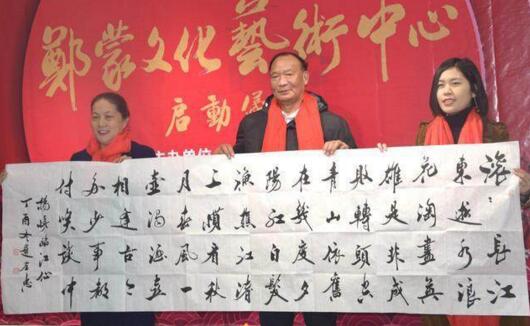 鄭蒙文化藝術中心
启動儀
主办单位
滚〻長江
東逝水浪
花淘盡英
雄是非成
敗轉頭空
青山依舊
在幾度夕
陽紅白髮
漁樵江渚
上慣看秋
月春風一
壺濁酒喜
相逢古今
多少事都
付笑談中
楊慎臨江仙
丁酉